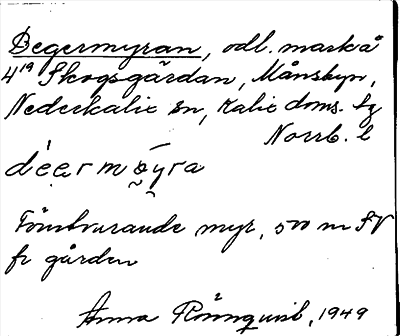 Degermyran, odl. mark å
4¹⁹ Skogsgårdan, Månsbyn,
Nederkalix sn, Kalix doms. sg
Norrb. l
déermy̆ra
Försvurande myr, 500 m SV
fr gården
Anna Rönnqvist, 1949